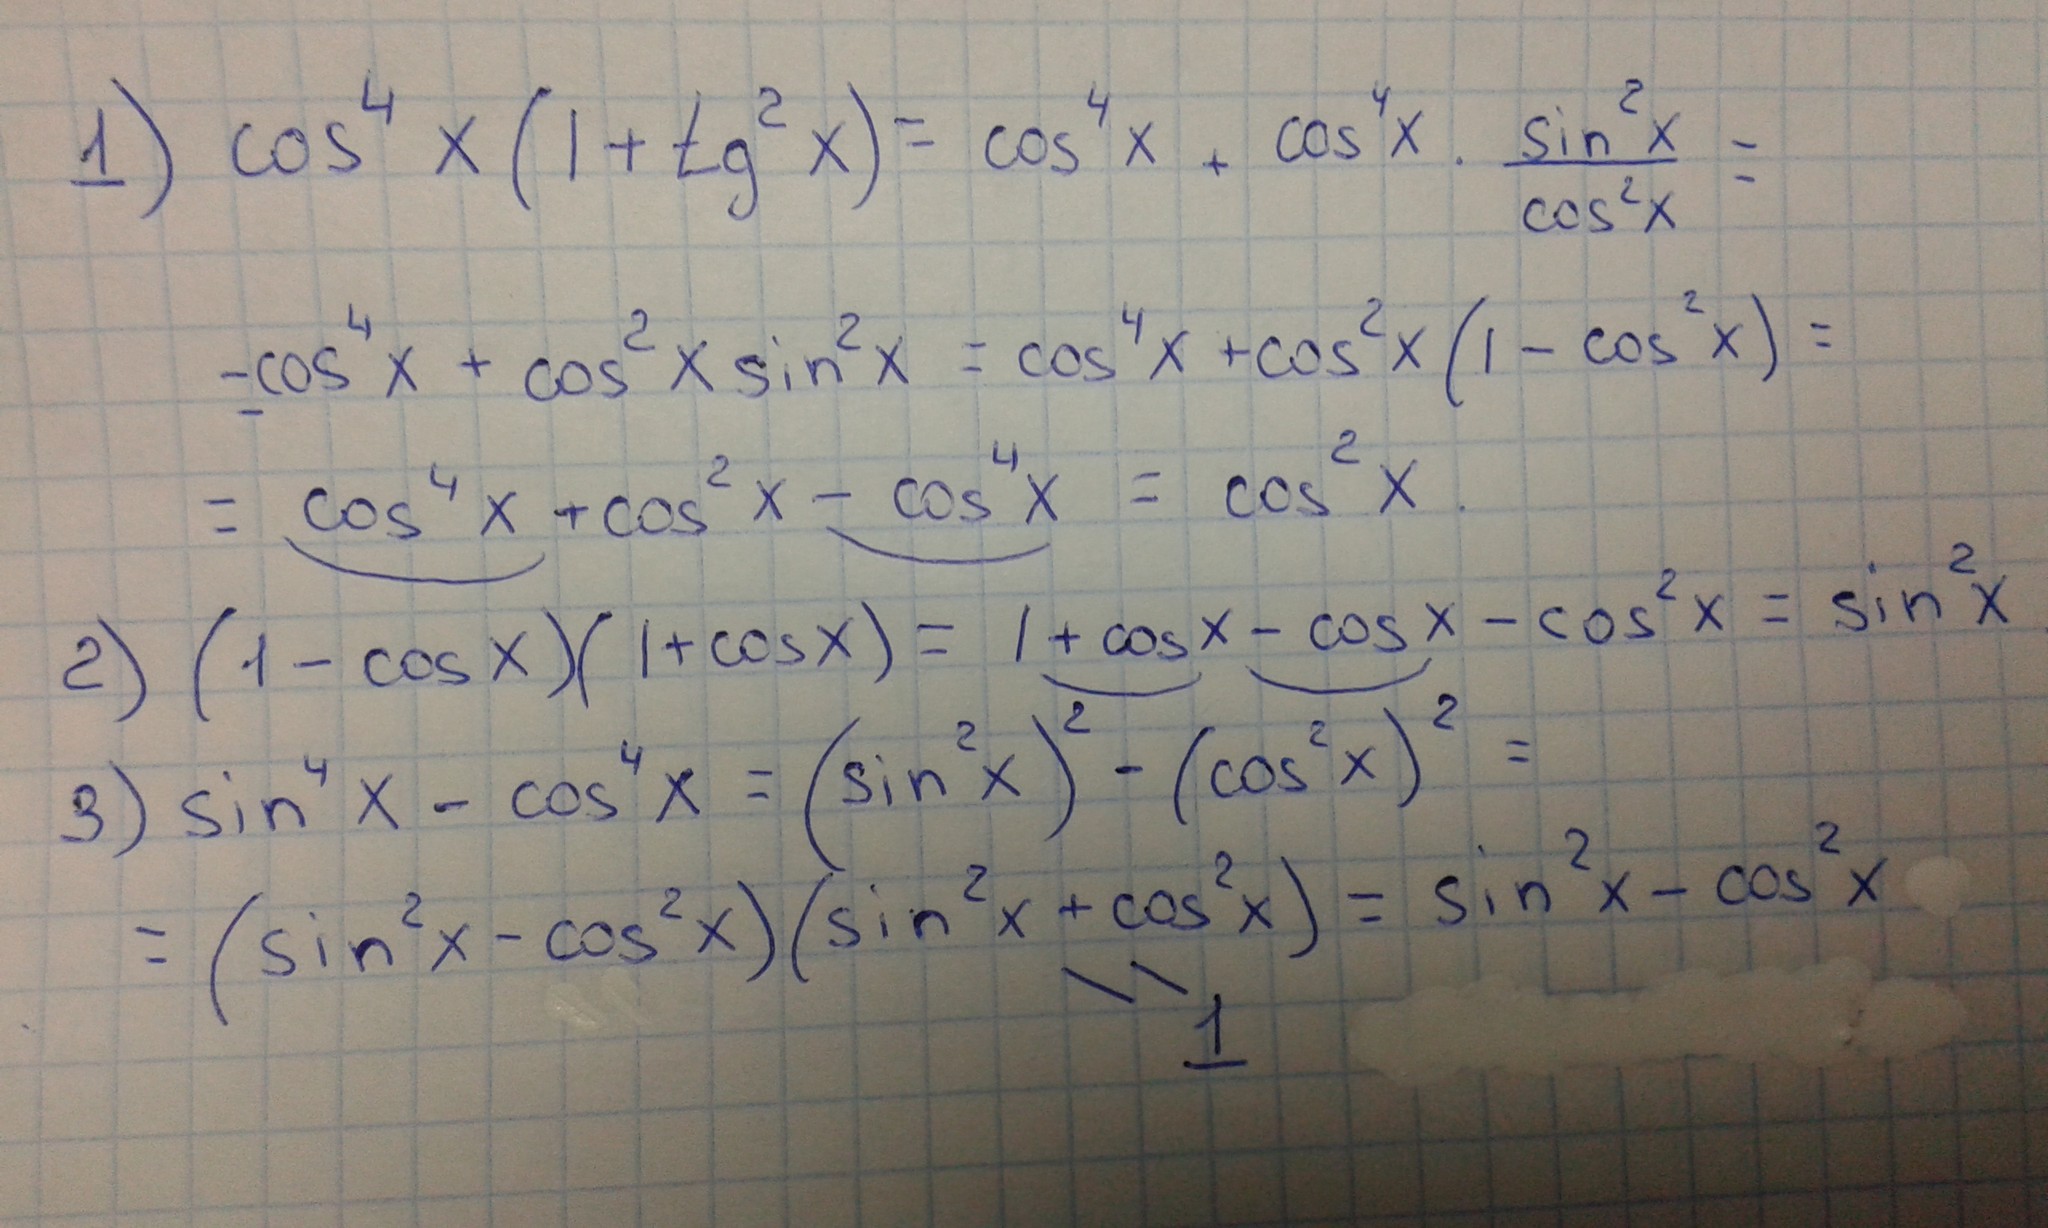 1) cos⁴x(1+tg²x) = cos⁴x + cos⁴x · sin²x/cos²x =
= cos⁴x + cos²x sin²x = cos⁴x + cos²x(1 - cos²x) =
= cos⁴x + cos²x - cos⁴x = cos²x.
2) (1 - cosx)(1+cosx) = 1 + cosx - cosx - cos²x = sin²x.
3) sin⁴x - cos⁴x = (sin²x)² - (cos²x)² =
= (sin²x - cos²x)(sin²x + cos²x) = sin²x - cos²x
1